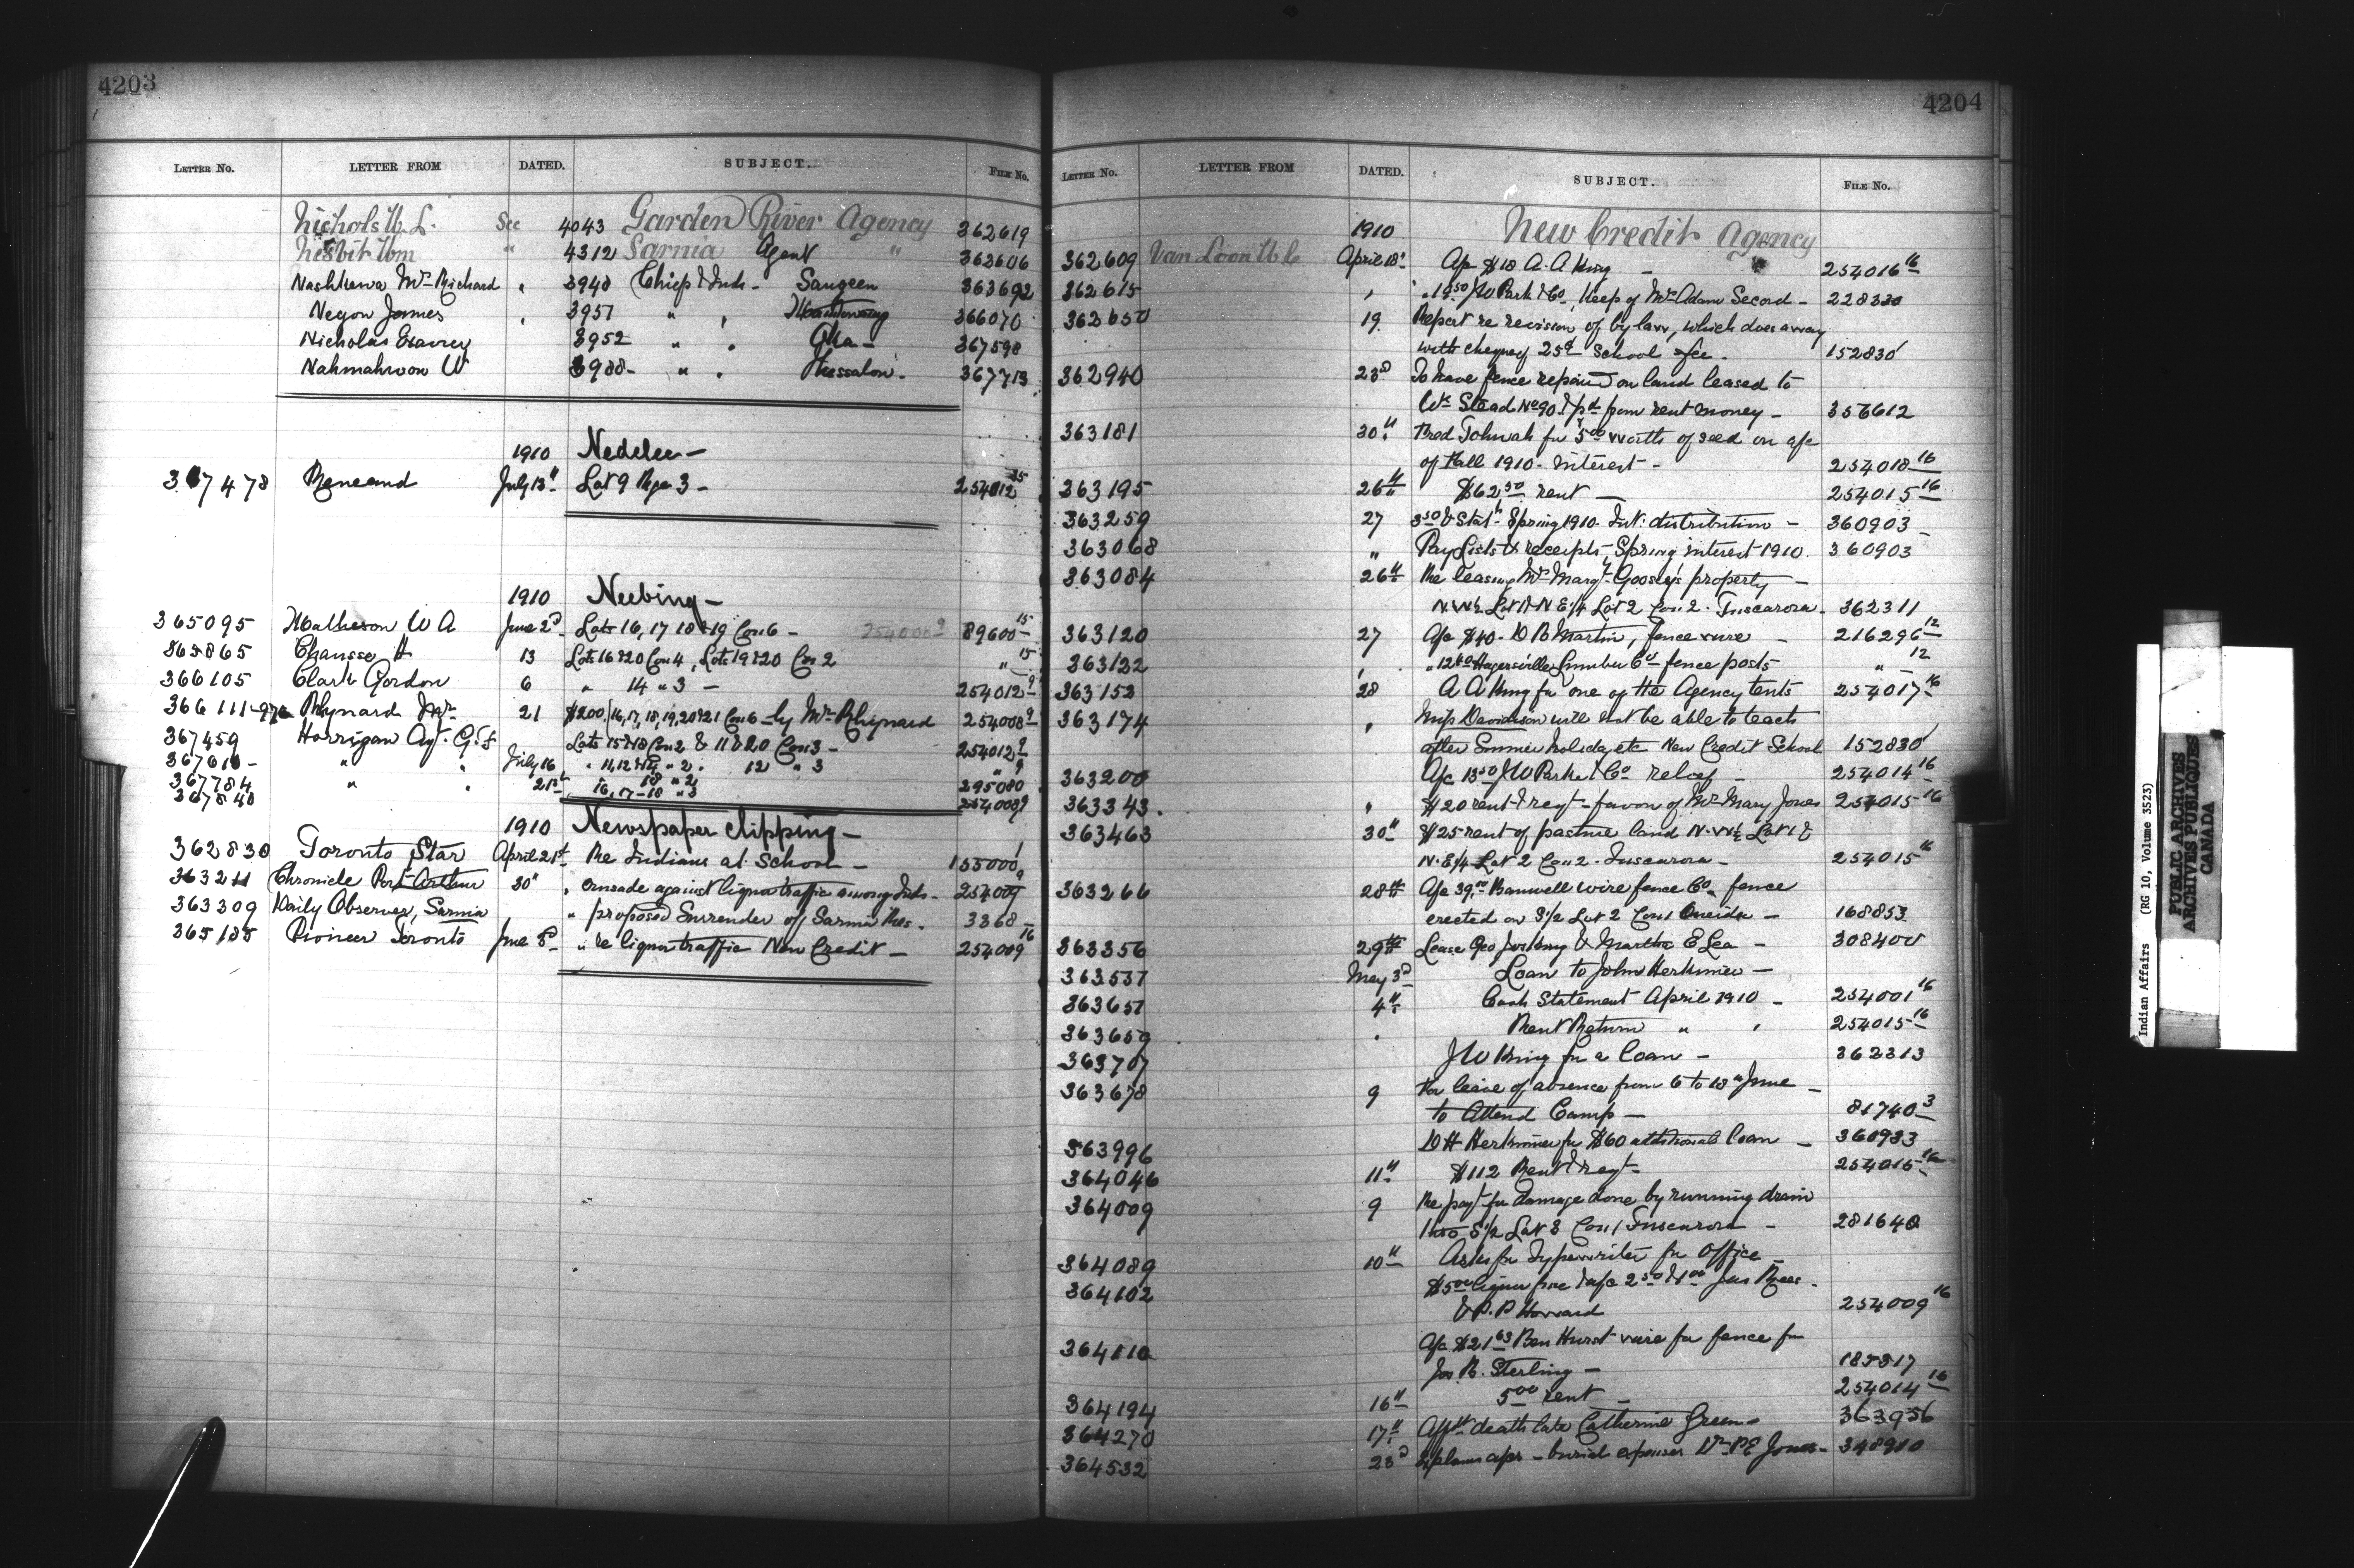 4203
LETTER NO. LETTER FROM DATED. SUBJECT. FILE NO.
Nichols W. L. See 4043 Garden River Agency 362619
Nesbit Wm " 4312 Sarnia Agent " 362606
Nashkewa Mrs Richard " 3948 Chief & Inds - Saugeen 363692
Negon James " 3951 " " 366070
Nicholas 3952 " " 367598
Nahmahwon W 3988 - " " Thessalon. 367713
1910 Nedelec -
367478 Reneaud July 13th Lot 9 Rge 3 - 254012 25
1910 Neebing -
365095 Matheson W A June 2d Lots 16, 17 18 & 19 Con 6 - 254000 9 89600 15
365865 Chausse H 13 Lots 16 & 20 Con 4, Lots 19 & 20 Con 2 " 15
366105 Clark Gordon 6 " 14 " 3 - 254012 9
366111-976 Rhynard Mrs 21 $200. 16, 17, 18, 19, 20 & 21 Con 6 - by Mrs Rhynard 254008 9
367459 Horrigan Agt. G. F Lots 15 & 18 Con 2 & 11 & 20 Con 3 - 254012 9
367616 - " " July 16 " 11, 12 & 14 " 2. 12 " 3 " 9
367784 " " 21st 18 " 2 295080
367840 16, 17 - 18 " 3 254008 9
1910 Newspaper Clipping -
362830 Toronto Star April 21st Re Indians at School - 155000 1
363211 Chronicle Port Arthur 30" " crusade against liquor traffic among Inds - 254009 9
363309 Daily Observer, Sarnia " proposed Surrender of Sarnia Res. 3368
365185 Pioneer Toronto June 8th " re liquor traffic New Credit - 254009 16
4204
LETTER NO. LETTER FROM DATED. SUBJECT. FILE NO.
1910 New Credit Agency
362609 Van Loon W C April 18" A/c $18 A. A King - 254016 16
362615 " " 19.50 J W Park & Co, Keep of Mrs Adam Secord - 228330
362650 19 Report re revision of by law, which does away
with charging 25¢ school fee. 152830
362940 23d To have fence repaired on land leased to
Wm Stead No 90 & pd from rent money - 356612
363181 30th Fred Tobicoe for 5.00 worth of seed on a/c
of Fall 1910 - Interest - 254018 16
363195 26th $62.50 rent - 254015 16
363259 27 3.50 & Statt Spring 1910 Int: distribution - 360903 -
363068 " Pay Lists & receipts, Spring interest 1910. 360903
363084 26th Re leasing Mrs Margt Goosey's property -
N. W ½ Lot 1 & N E ¼ Lot 2 Con 2 - Tuscarora - 362311
363120 27 A/c $40 - D B Martin, fence wire - 216296 12
363122 " " Hagersville Lumber Co - fence posts " 12
363153 28 A A King for one of the Agency tents 254017 16
363174 " Miss Davidson will not be able to teach
after Summer holiday etc New Credit School 152830
363200 A/c 13.50 J W Parke & Co - 254014 16
363343. " $20 rent & regt - favor of Mrs Mary Jones 254015 16
363463 30" $25 rent of pasture land N. W ½ Lot 1 &
N. E ¼ Lot 2 Con 2 - Tuscarora - 254015 16
363266 28th A/c 39.00 Banwell wire fence Co, fence
erected on S ½ Lot 2 Con 1 Oneida - 168853
363356 29th Lease Geo King & Martha E Lea - 308400
363537 May 3d Loan to John Herkimer -
363651 4th Cash Statement April 1910 - 254001 16
363659 " Rent Return " " 254015 16
363707 J W King for a loan - 362313
363678 9 For leave of absence from 6 to 18th June -
to Attend Camp - 81740 3
363996 D H Herkimer for $60 additional loan - 360933
364046 11th $112 Rent & regt - 254015 16
364009 9 Re payt for damage done by running drain
thro S ½ Lot 8 Con 1 Tuscarora - 281640
364089 10th Asks for Typewriter for Office -
364102 $5.00 liquor fine & a/c 2.50 & 1.00 Jas
& P. P Howard 254009 16
364110 A/c $21.63 Ben Hurst wire for fence for
Jos R. Sterling - 185817
364194 16th 5.00 rent - 254014 16
364270 17th Affdt death late Catherine Green - 363956
364532 23d - burial expenses Dr P E Jones - 348910
Indian Affairs (RG 10, Volume 3523)
PUBLIC ARCHIVES
ARCHIVES PUBLIQUES
CANADA